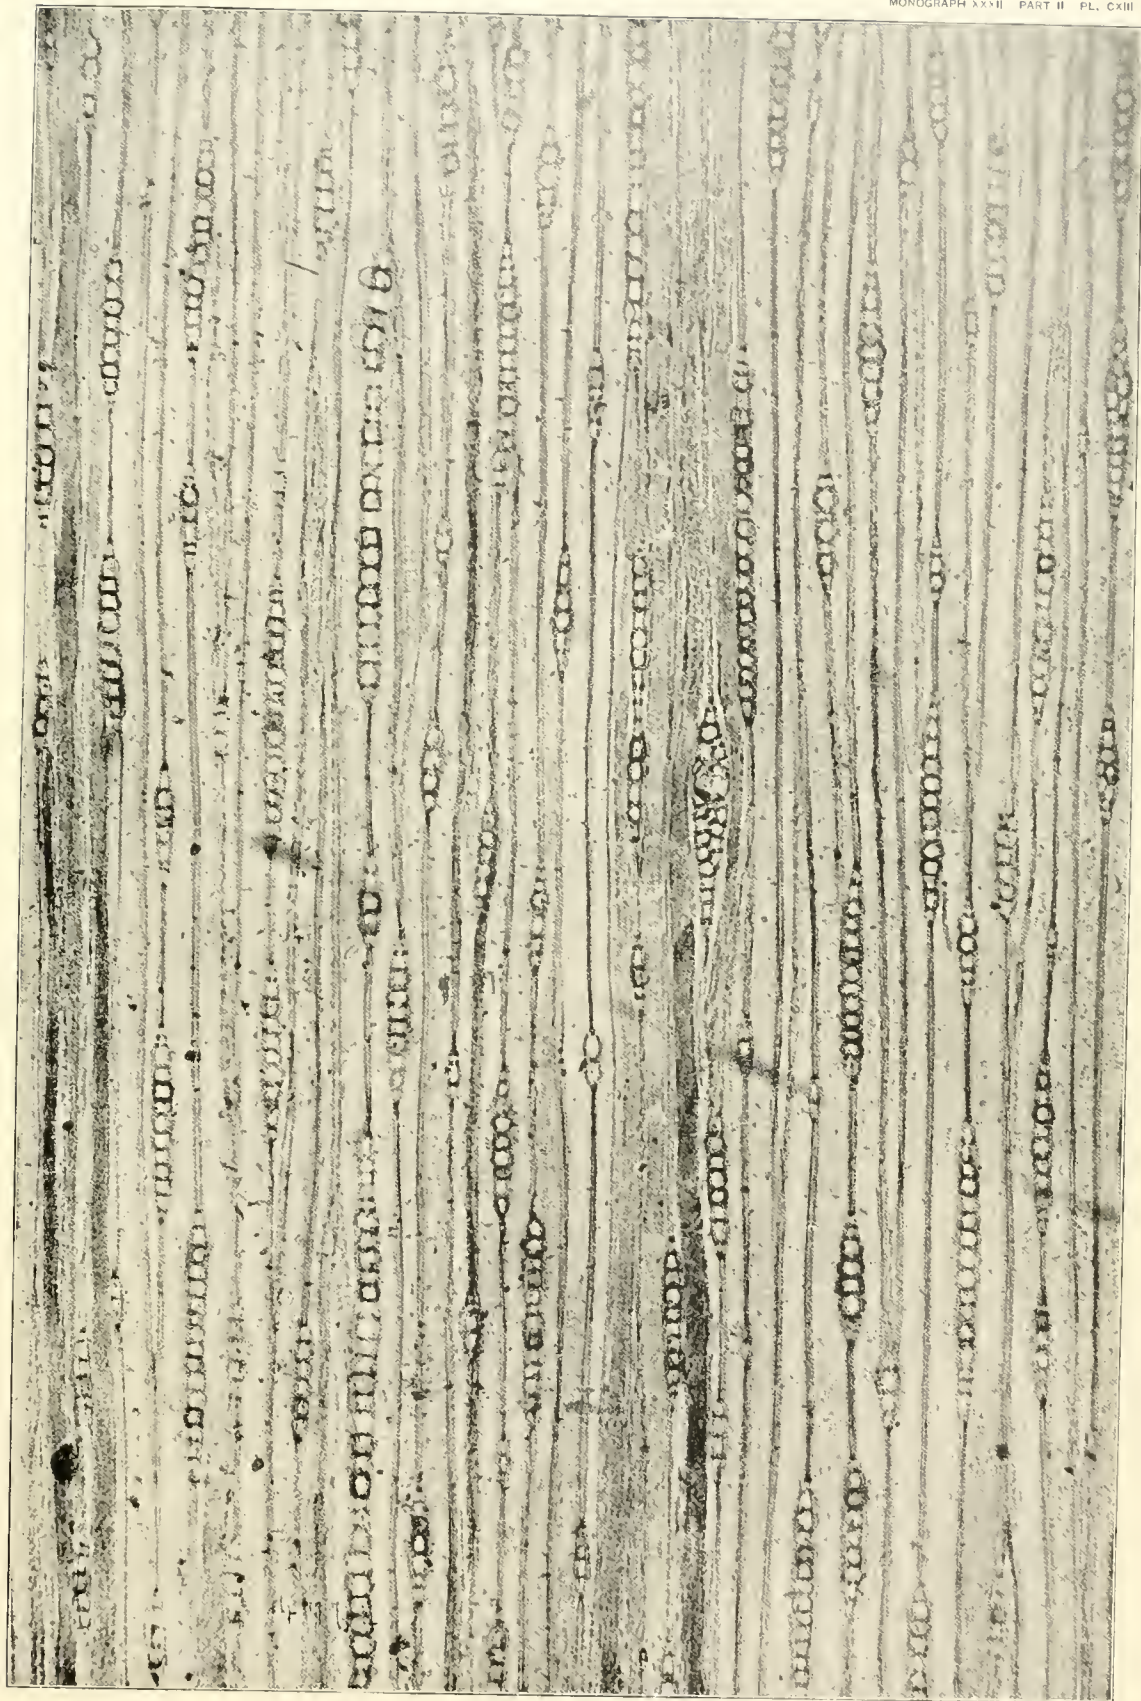 MONOGRAPH XXXII PART II PL. CXIII